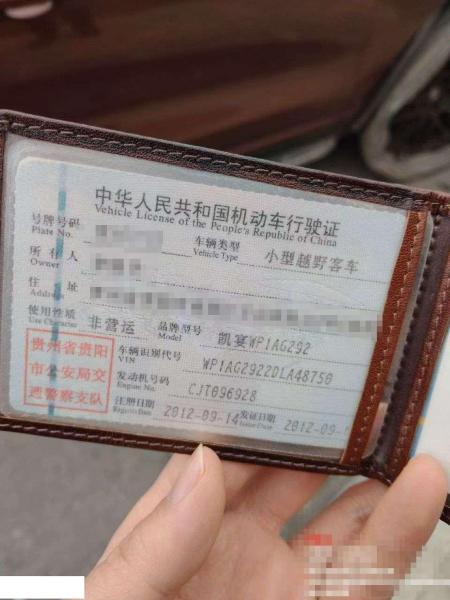 中华人民共和国机动车行驶证
Vehicle License of the People's Republic of China
号牌号码 Plate No. 车辆类型 Vehicle Type 小型越野客车
所有人 Owner
住址 Address
使用性质 Use Character 非营运 品牌型号 Model 凯宴WP1AG292
贵州省贵阳市公安局交通警察支队
车辆识别代号 VIN WP1AG2922DLA48750
发动机号码 Engine No. CJT096928
注册日期 Register Date 2012-09-14 发证日期 Issue Date 2012-09-